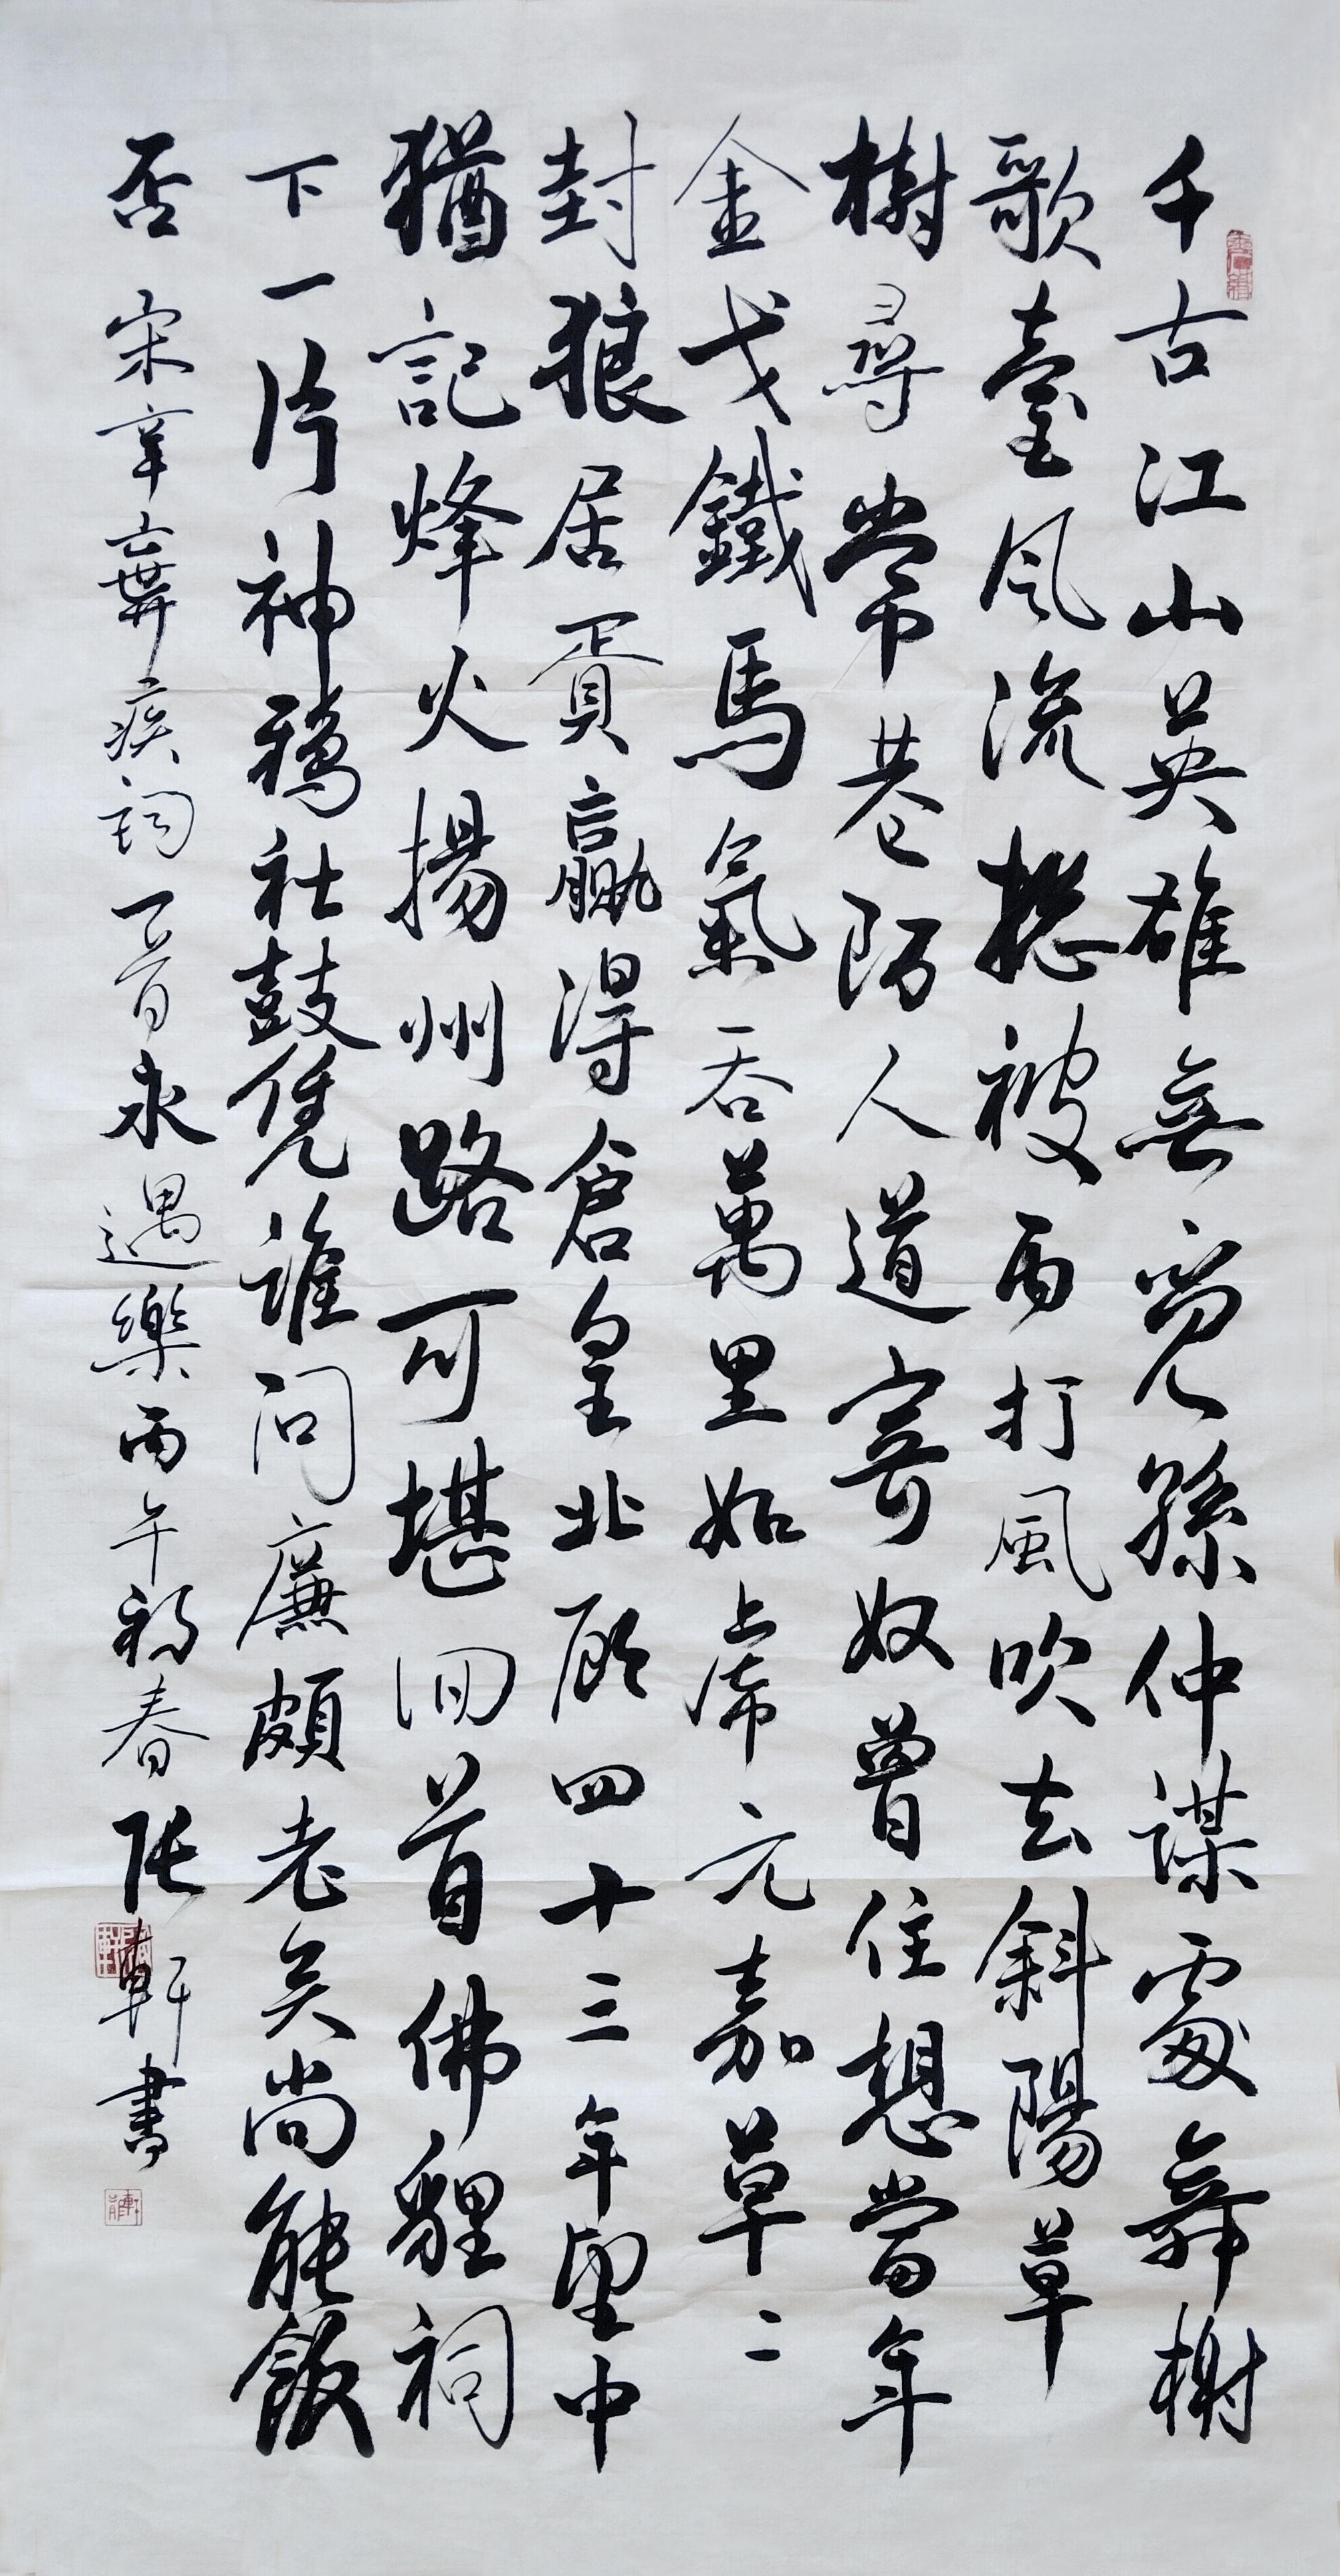 千古江山英雄無覓孫仲謀處舞榭
歌臺風流揔被雨打風吹去斜陽草
樹尋常巷陌人道寄奴曾住想當年
金戈鐵馬氣吞萬里如虎元嘉草々
封狼居胥贏得倉皇北顧四十三年望中
猶記烽火揚州路可堪回首佛貍祠
下一片神鴉社鼓凭誰問廉頗老矣尚能飯
否 宋辛棄疾詞一首永遇樂丙午初春張軒書